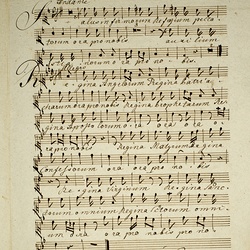 Andante
Salus infirmorum refugium pecca
torum ora pro nobis auxilium
norum ora pro no bis.
Regina Angelorum Regina Patriar
charum ora pro nobis Regina prophetarum Re
gina Apostolorum ora ora o
ra pro nobis Regina Martyrum Regina
Confessorum ora ora pro no bis
Re gina Virginum Re gina Sanc
torum omnium Regina Sanctorum omni
um ora ora pro nobis pro no